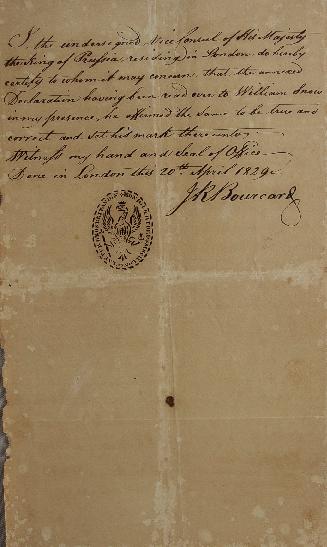 I, the undersigned Vice Consul of His Majesty
the King of Prussia, residing in London do hereby
certify to whom it may concern, that the annexed
Declaration having been read over to William Snow
in my presence, he affirmed the same to be true and
correct and set his mark thereunto.
Witness my hand and Seal of Office
Done in London this 20th April 1829.
J R Bourcard